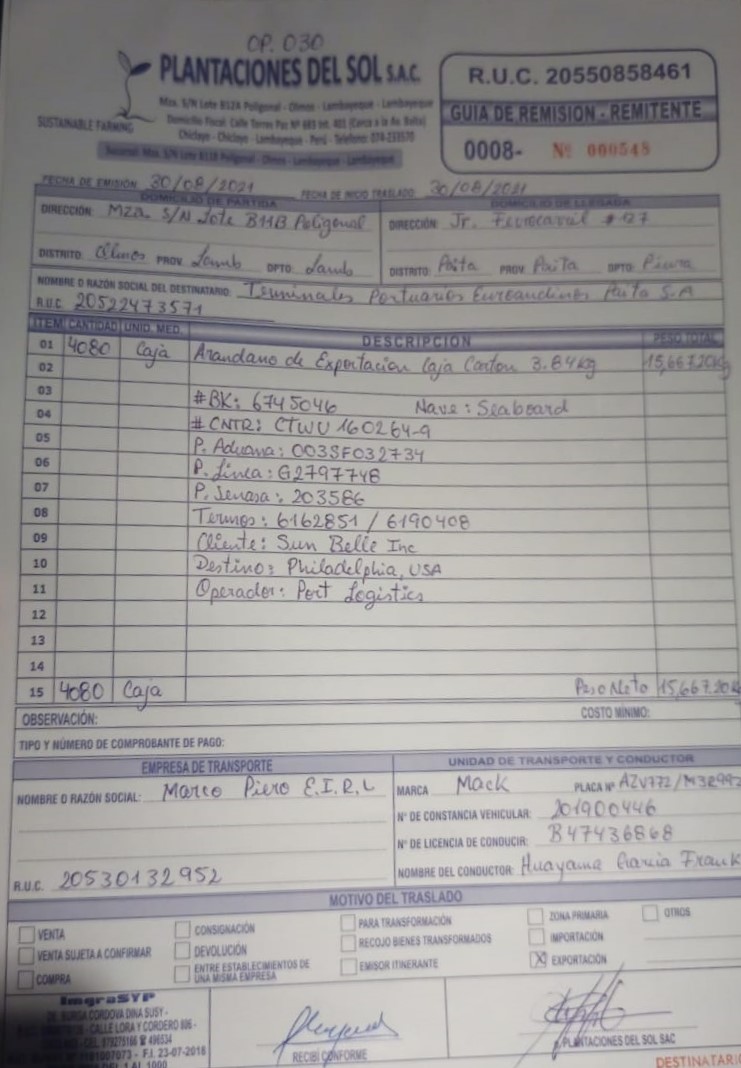 OP. 030
PLANTACIONES DEL SOL S.A.C.
SUSTAINABLE FARMING
Mza. S/N Lote B12A Poligonal - Olmos - Lambayeque - Lambayeque
Domicilio Fiscal: Calle Torres Paz Nº 685 Int. 401 (Cerca a la Av. Balta)
Chiclayo - Chiclayo - Lambayeque - Perú - Teléfono: 074-233570
Sucursal: Mza. S/N Lote B11B Poligonal - Olmos - Lambayeque - Lambayeque
R.U.C. 20550858461
GUIA DE REMISION - REMITENTE
0008- Nº 000548
FECHA DE EMISIÓN: 30/08/2021 FECHA DE INICIO TRASLADO: 30/08/2021
DOMICILIO DE PARTIDA DOMICILIO DE LLEGADA
DIRECCIÓN: Mza. S/N Lote B11B Poligonal DIRECCIÓN: Jr. Ferrocarril #127
DISTRITO: Olmos PROV. Lamb DPTO: Lamb DISTRITO: Paita PROV. Paita DPTO: Piura
NOMBRE O RAZÓN SOCIAL DEL DESTINATARIO: Terminales Portuarios Euroandinos Paita S.A
R.U.C. 20522473571
ITEM CANTIDAD UNID. MED. DESCRIPCION PESO TOTAL
01 4080 Caja Arandano de Exportacion Caja Carton 3.84kg 15,667.20kg
02
03 #BK: 6745046 Nave: Seaboard
04 #CNTR: CTWU 160264-9
05 P. Aduana: 003SF032734
06 P. Linea: G2797748
07 P. Senasa: 203586
08 Termos: 6162851 / 6190408
09 Cliente: Sun Belle Inc
10 Destino: Philadelphia, USA
11 Operador: Port Logistics
12
13
14
15 4080 Caja Peso Neto 15,667.20kg
OBSERVACIÓN: COSTO MÍNIMO:
TIPO Y NÚMERO DE COMPROBANTE DE PAGO:
EMPRESA DE TRANSPORTE UNIDAD DE TRANSPORTE Y CONDUCTOR
NOMBRE O RAZÓN SOCIAL: Marco Piero E.I.R.L MARCA Mack PLACA Nº AZV772/M3R992
Nº DE CONSTANCIA VEHICULAR: 201900446
Nº DE LICENCIA DE CONDUCIR: B47436868
R.U.C. 20530132952 NOMBRE DEL CONDUCTOR: Huayama Garcia Frank
MOTIVO DEL TRASLADO
VENTA CONSIGNACIÓN PARA TRANSFORMACIÓN ZONA PRIMARIA OTROS
VENTA SUJETA A CONFIRMAR DEVOLUCIÓN RECOJO BIENES TRANSFORMADOS IMPORTACIÓN
COMPRA ENTRE ESTABLECIMIENTOS DE UNA MISMA EMPRESA EMISOR ITINERANTE X EXPORTACIÓN
ImgraSYP
DE: BURGA CORDOVA DINA SUSY -
CALLE LORA Y CORDERO 806 -
CEL. 979275166 496534
F.I. 23-07-2018
DEL 1 AL 1000
RECIBÍ CONFORME
PLANTACIONES DEL SOL SAC
DESTINATARIO